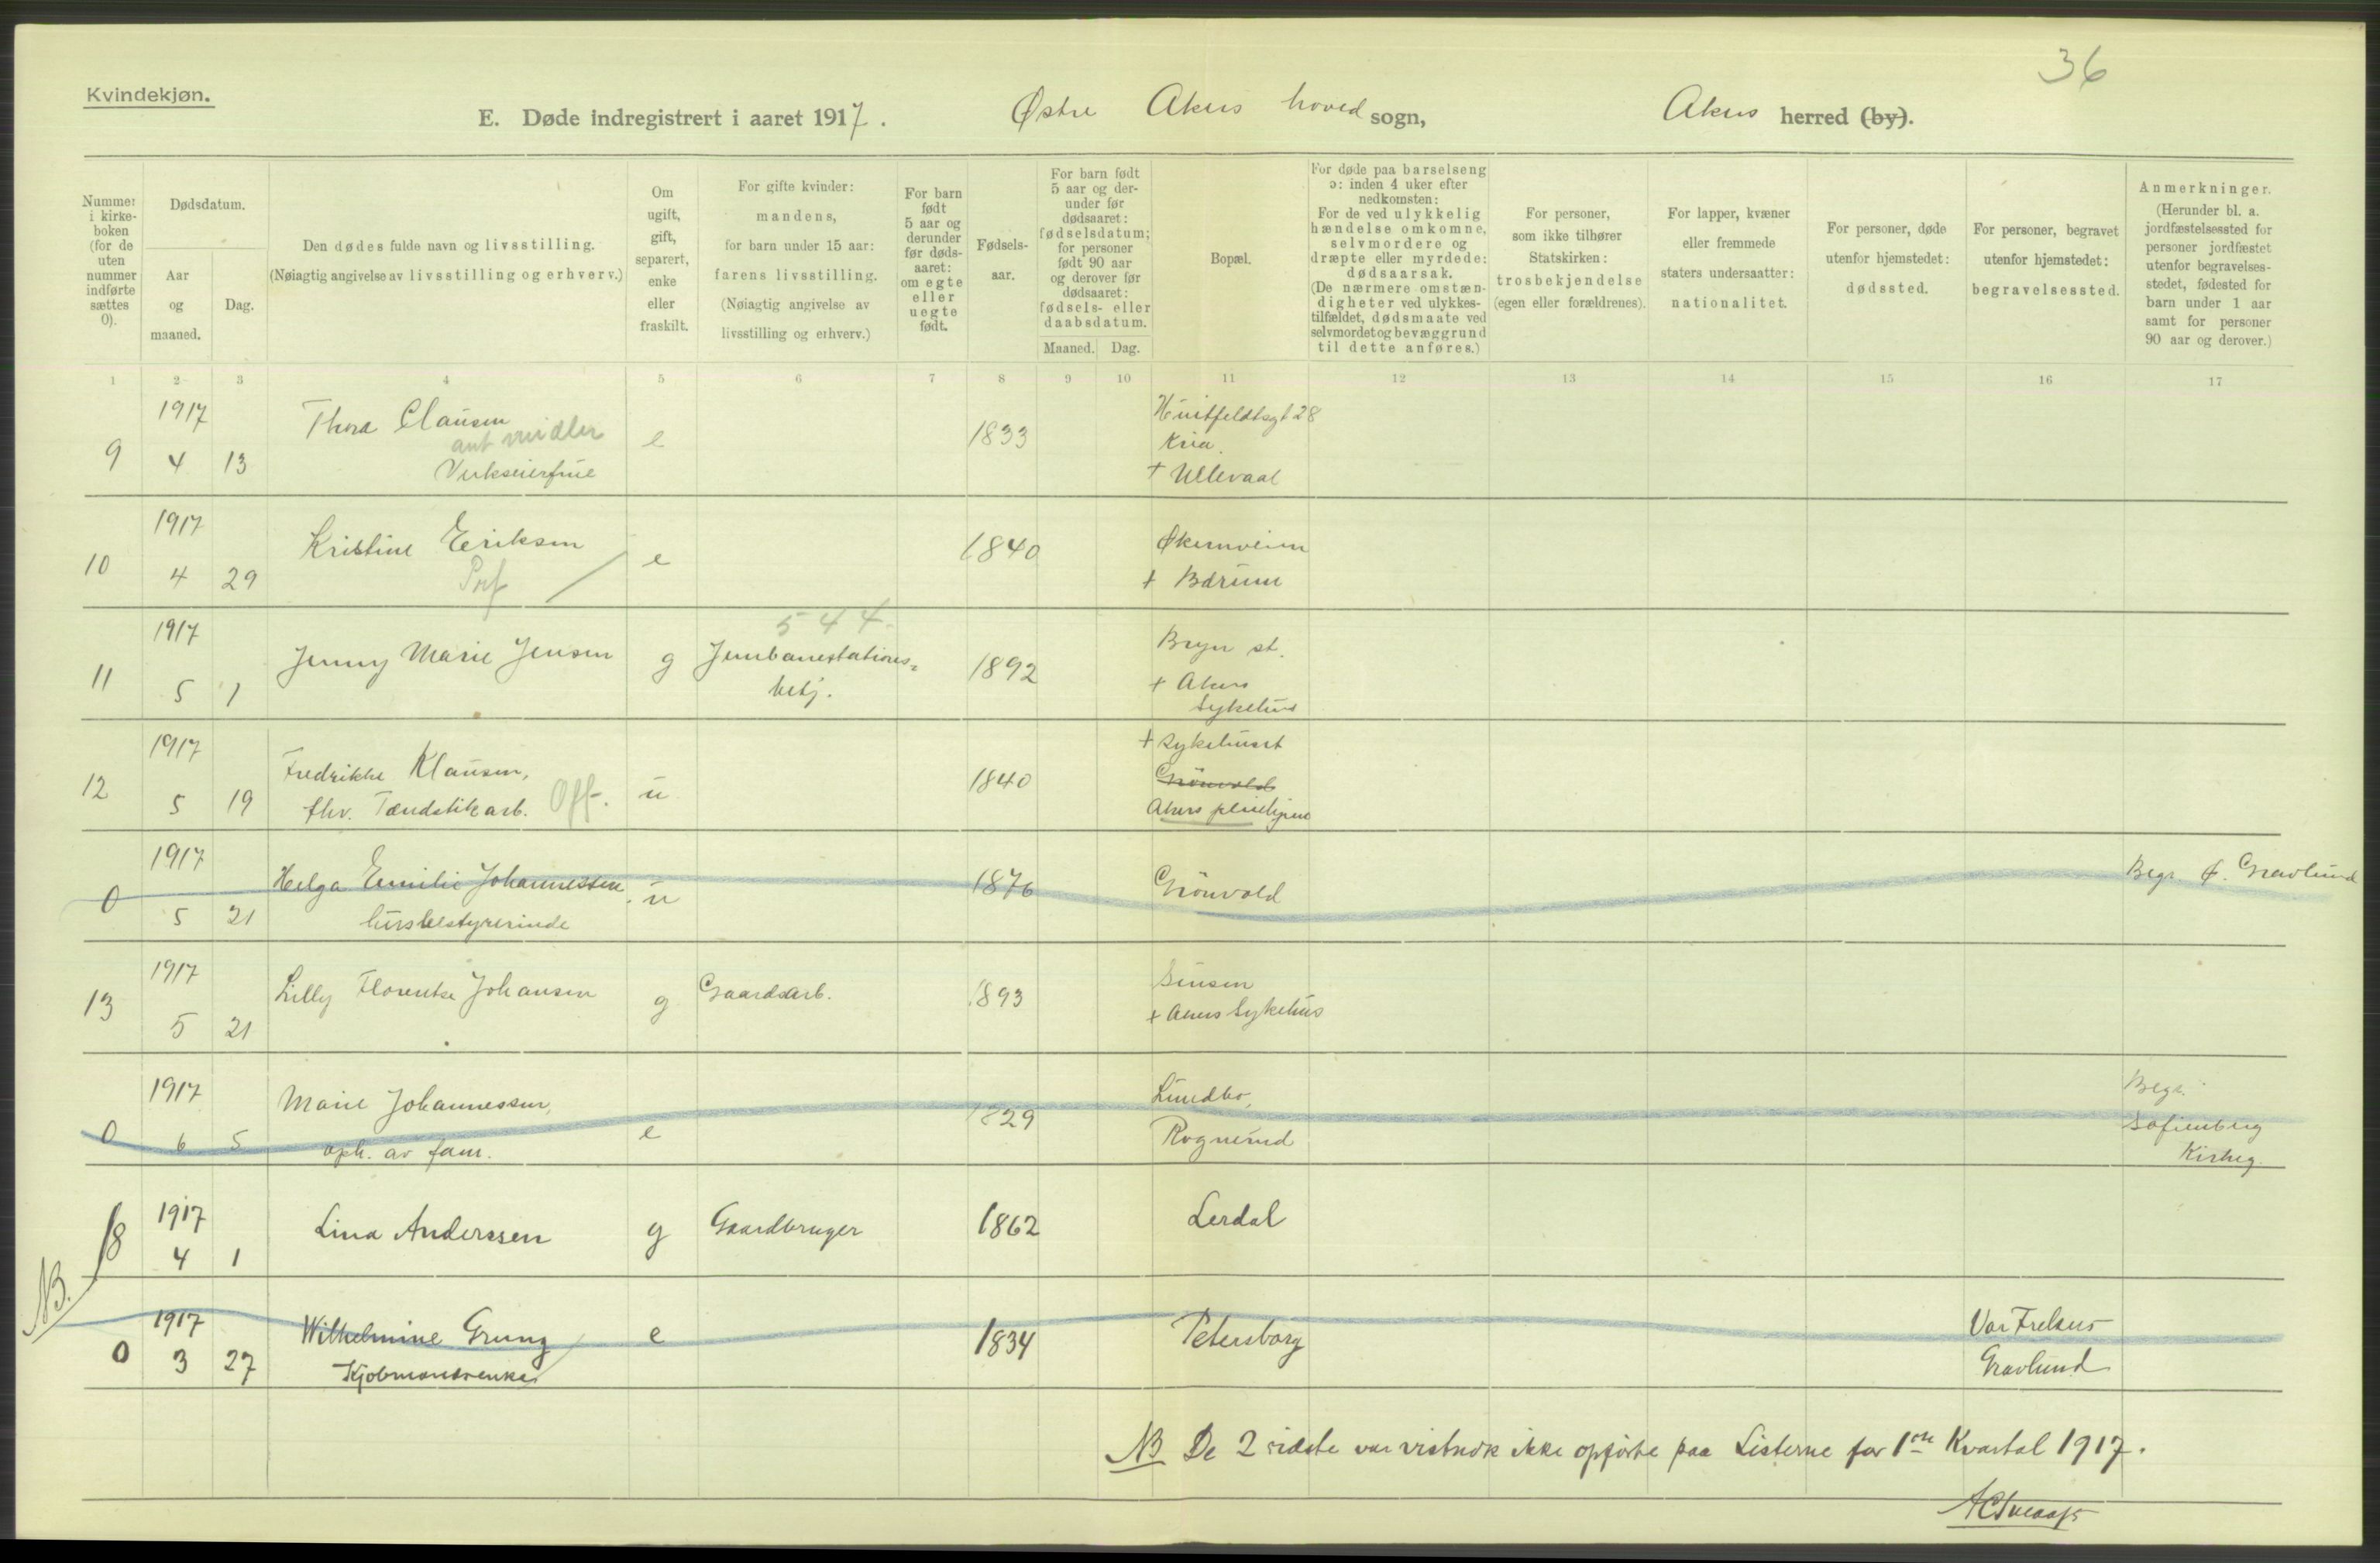 36
Kvindekjøn.
E. Døde indregistrert i aaret 1917. Østre Akers hoved sogn, Akers herred (by).
Nummer i kirkeboken (for de uten nummer indførte sættes 0).
Dødsdatum.
Aar og maaned.
Dag.
Den dødes fulde navn og livsstilling.
(Nøiagtig angivelse av livsstilling og erhverv.)
Om ugift, gift, separert, enke eller fraskilt.
For gifte kvinder: mandens, for barn under 15 aar: farens livsstilling. (Nøiagtig angivelse av livsstilling og erhverv.)
For barn født 5 aar og derunder før dødsaaret: om egte eller uegte født.
Fødselsaar.
For barn født 5 aar og derunder før dødsaaret: fødselsdatum; for personer født 90 aar og derover før dødsaaret: fødsels- eller daabsdatum.
Maaned. Dag.
Bopæl.
For døde paa barselseng ɔ: inden 4 uker efter nedkomsten: For de ved ulykkelig hændelse omkomne, selvmordere og dræpte eller myrdede: dødsaarsak. (De nærmere omstændigheter ved ulykkestilfældet, dødsmaate ved selvmordet og bevæggrund til dette anføres.)
For personer, som ikke tilhører Statskirken: trosbekjendelse (egen eller forældrenes).
For lapper, kvæner eller fremmede staters undersaatter: nationalitet.
For personer, døde utenfor hjemstedet: dødssted.
For personer, begravet utenfor hjemstedet: begravelsessted.
Anmerkninger. (Herunder bl. a. jordfæstelsessted for personer jordfæstet utenfor begravelsesstedet, fødested for barn under 1 aar samt for personer 90 aar og derover.)
1 2 3 4 5 6 7 8 9 10 11 12 13 14 15 16 17
1917 Thora Clausen Huitfeldtsgt 28
9 4 13 Verkseierfrue e 1833 Kria.
+ Ullevaal
1917 Kristine Eriksen Økernveien
10 4 29 e 1840 + Bærum
544
1917 Jenny Marie Jensen g Jernbanestations= 1892 Bryn st.
11 5 1 betj. + Akers
Sykehus
1917 Fredrikke Klausen, + Sykehuset
12 5 19 fhv. Tændstikarb. Off. u 1840 Grönvold
Akers pleiehjem
1917 Helga Emilie Johannessen u 1876 Grönvold Begr. Ø. Gravlund
0 5 21 husbestyrerinde
1917 Lilly Florentse Johansen g Gaardsarb. 1893 Sinsen
13 5 21 + Akers Sykehus
1917 Marie Johannessen, 1829 Lundbo, Begr.
0 6 5 oph. av fam. e Rognerud Sofienberg
Kirkeg.
1917 Lina Anderssen g Gaardbruger 1862 Lerdal
8 4 1
NB.
1917 Wilhelmine Grung e 1834 Petersborg Vor Frelsers
0 3 27 Kjøbmandsenke Gravlund
NB De 2 sidste var vistnok ikke opførte paa Listerne for 1ste Kvartal 1917.